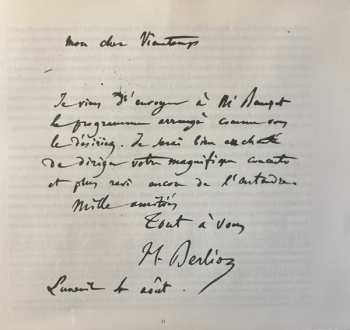 mon cher Vieuxtemps
Je viens d'envoyer à Mr
le programme arrangé comme vous
le désiriez. Je serai bien enchanté
de diriger votre magnifique concerto
et plus ravi encore de l'entendre.
Mille amitiés
Tout à vous
H. Berlioz
août.